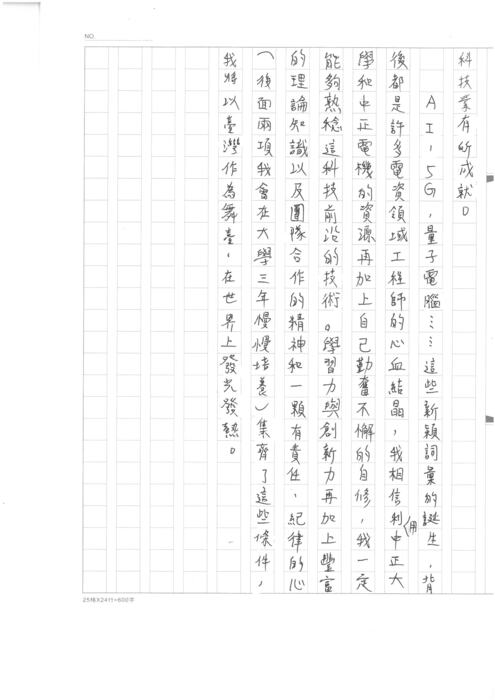 NO.
科技業有所成就。
AI，5G，量子電腦……這些新穎詞彙的誕生，背
後都是許多電資領域工程師的心血結晶，我相信利用中正大
學和中正電機的資源再加上自己勤奮不懈的自修，我一定
能夠熟稔這科技前沿的技術。學習力與創新力再加上豐富
的理論知識以及團隊合作的精神和一顆有責任，紀律的心
（後面兩項我會在大學三年慢慢培養）集齊了這些條件，
我將以臺灣作為舞臺，在世界上發光發熱。
25格X24行=600字